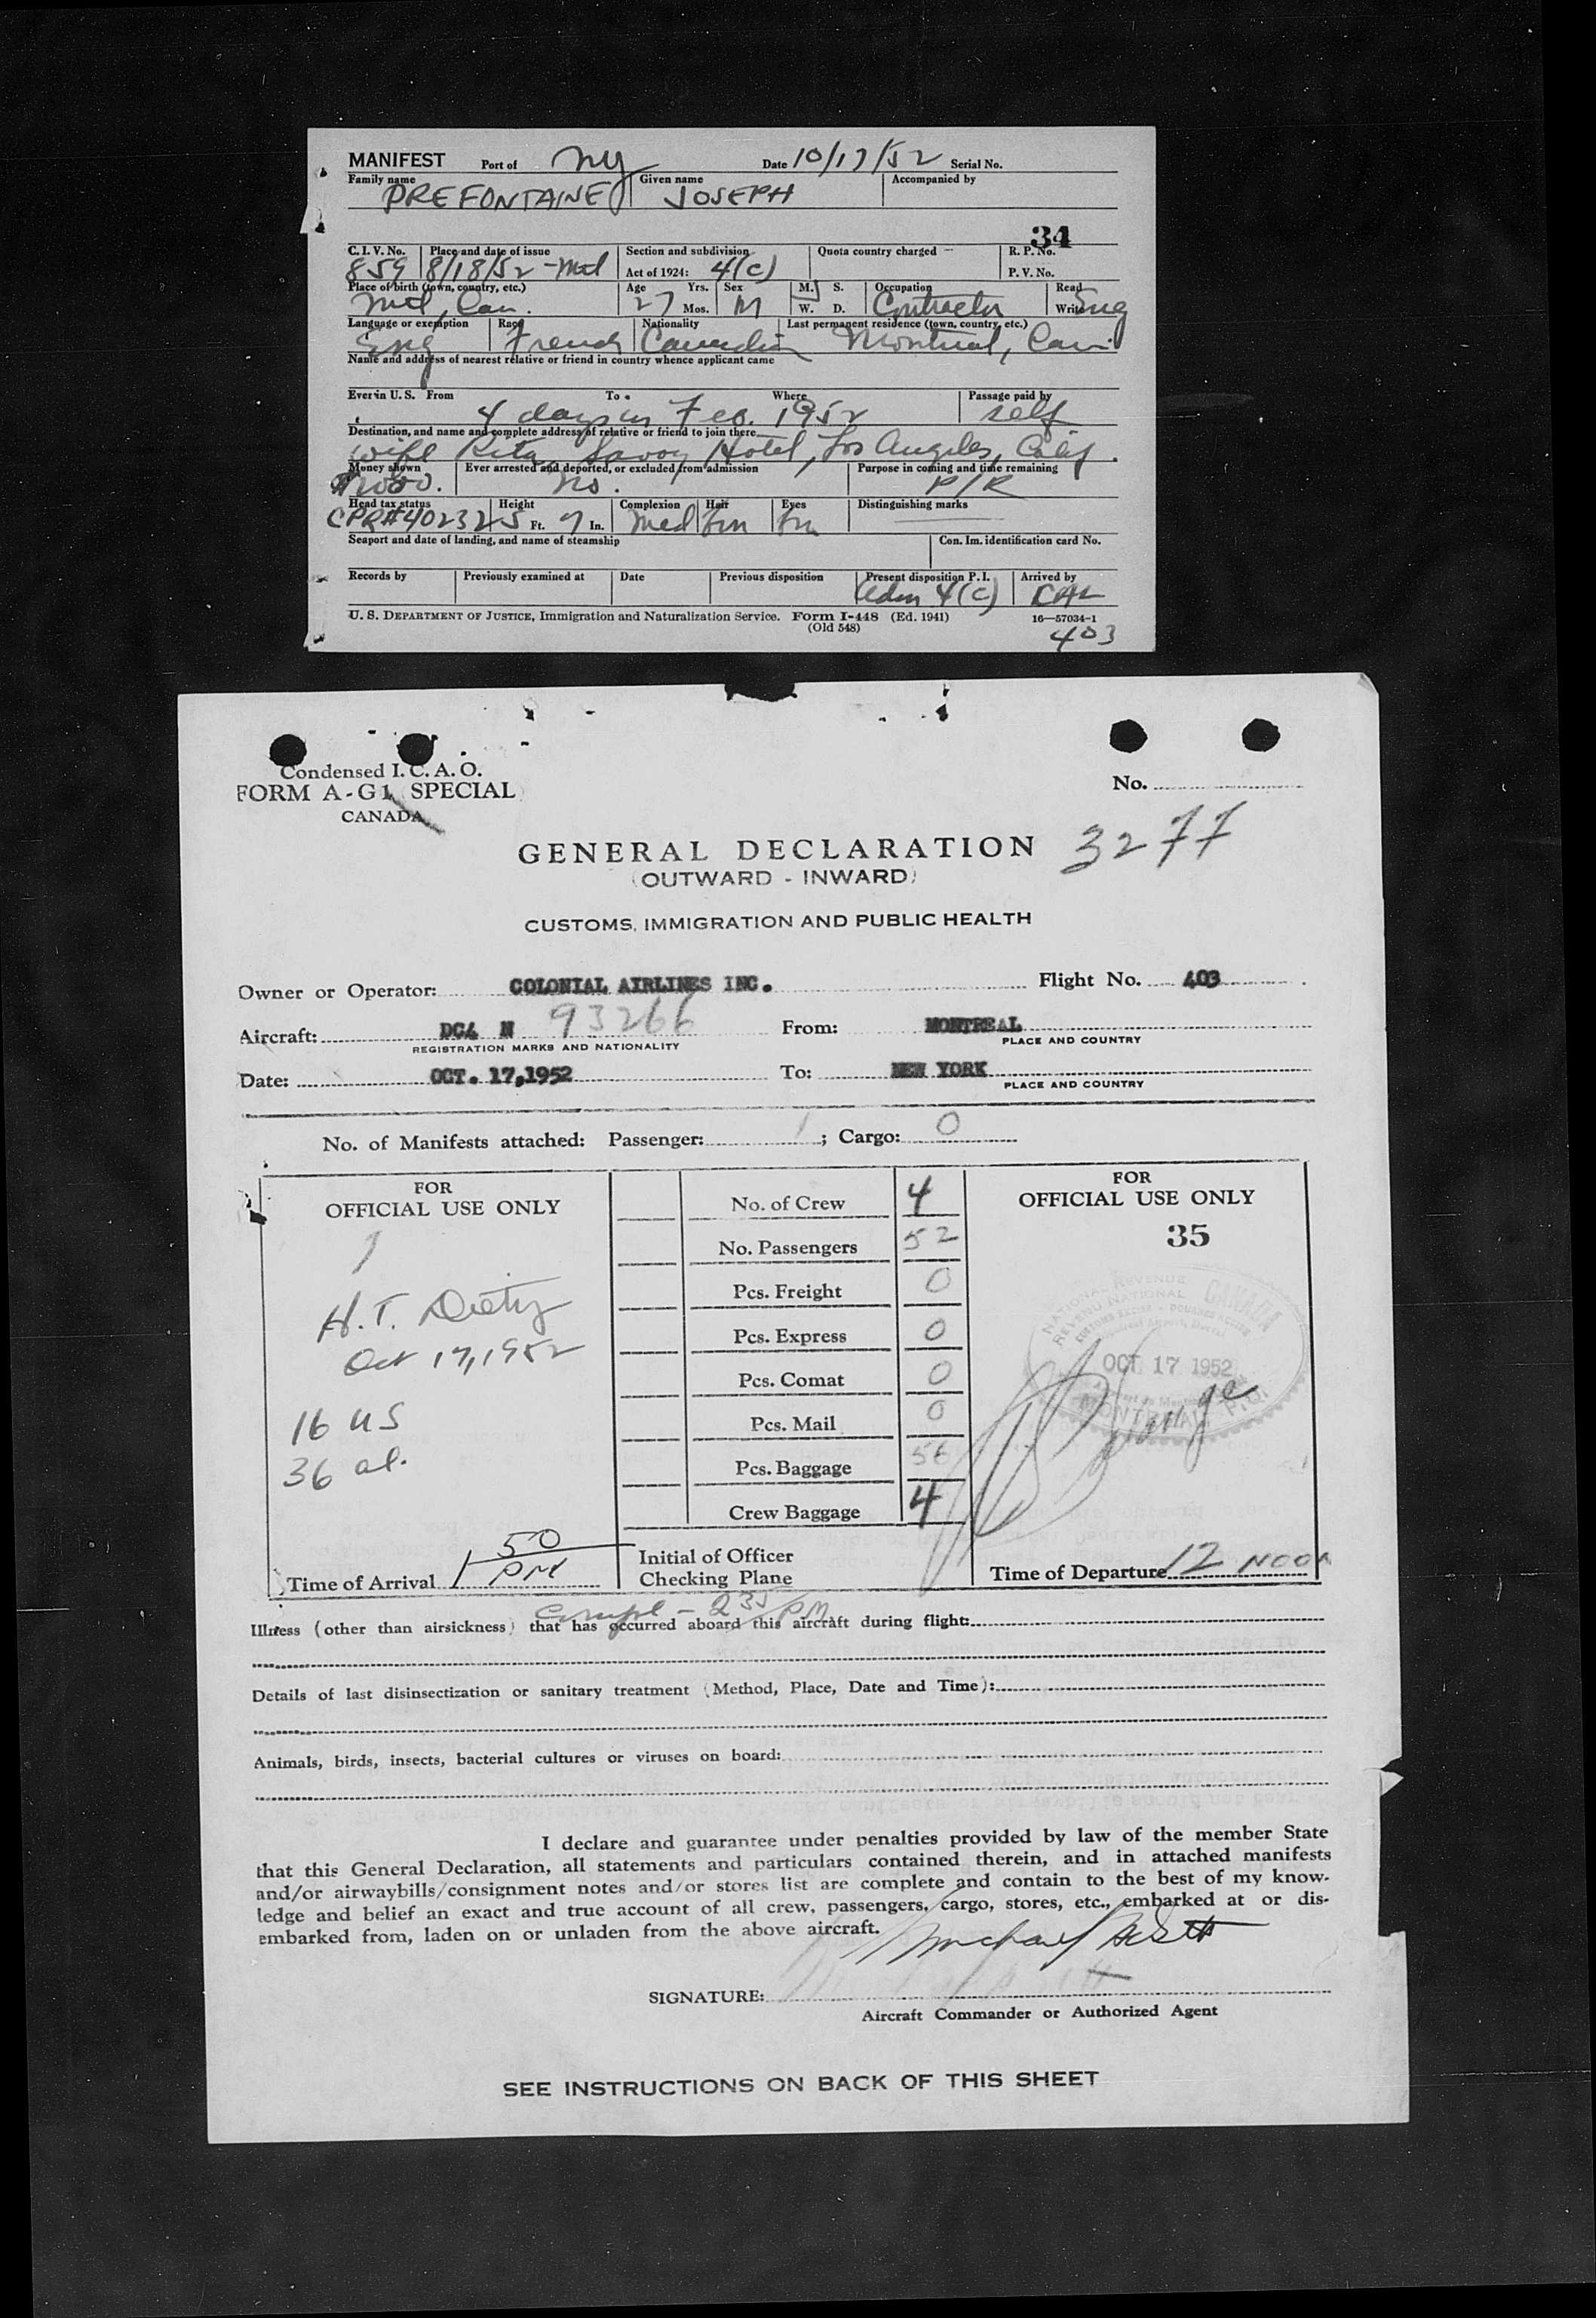 MANIFEST Port of NY Date 10/17/52 Serial No.
Family name Given name Accompanied by
PREFONTAINE JOSEPH
34
C. I. V. No. Place and date of issue Section and subdivision Quota country charged R. P. No.
859 8/18/52 - Mtl Act of 1924: 4(c) P. V. No.
Place of birth (town, country, etc.) Age Yrs. Sex M. S. Occupation Read
Mtl, Can. 27 Mos. M W. D. Contractor Write Eng
Language or exemption Race Nationality Last permanent residence (town, country, etc.)
Eng French Canadian Montreal, Can.
Name and address of nearest relative or friend in country whence applicant came
Ever in U. S. From To Where Passage paid by
4 days in Feb. 1952 self
Destination, and name and complete address of relative or friend to join there
wife Rita, Savoy Hotel, Los Angeles, Calif.
Money shown Ever arrested and deported, or excluded from admission Purpose in coming and time remaining
$2000. No. P/R
Head tax status Height Complexion Hair Eyes Distinguishing marks
CPR# 40232 5 Ft. 7 In. Med
Seaport and date of landing, and name of steamship Con. Im. identification card No.
Records by Previously examined at Date Previous disposition Present disposition P. I. Arrived by
Adm 4(c) CAL
U. S. DEPARTMENT OF JUSTICE, Immigration and Naturalization Service. Form I-448 (Ed. 1941) 16—57034-1
(Old 548) 403
Condensed I. C. A. O.
FORM A-G1 SPECIAL No.
CANADA
GENERAL DECLARATION 3277
(OUTWARD - INWARD)
CUSTOMS, IMMIGRATION AND PUBLIC HEALTH
Owner or Operator: COLONIAL AIRLINES INC. Flight No. 403
Aircraft: DC4 N 93266 From: MONTREAL
REGISTRATION MARKS AND NATIONALITY PLACE AND COUNTRY
Date: OCT. 17,1952 To: NEW YORK
PLACE AND COUNTRY
No. of Manifests attached: Passenger: 1; Cargo: 0
FOR FOR
OFFICIAL USE ONLY No. of Crew 4 OFFICIAL USE ONLY
1 No. Passengers 52 35
Pcs. Freight 0
H.T. Dietz Pcs. Express 0
Oct 17, 1952 Pcs. Comat 0 OCT 17 1952
16 US Pcs. Mail 0 MONTREAL P.Q.
36 al. Pcs. Baggage 56
Crew Baggage 4
Time of Arrival 1 50 PM Initial of Officer Time of Departure 12 NOON
Checking Plane
Compl - 2 35 PM
Illness (other than airsickness) that has occurred aboard this aircraft during flight:
Details of last disinsectization or sanitary treatment (Method, Place, Date and Time):
Animals, birds, insects, bacterial cultures or viruses on board:
I declare and guarantee under penalties provided by law of the member State
that this General Declaration, all statements and particulars contained therein, and in attached manifests
and/or airwaybills/consignment notes and/or stores list are complete and contain to the best of my know-
ledge and belief an exact and true account of all crew, passengers, cargo, stores, etc., embarked at or dis-
embarked from, laden on or unladen from the above aircraft.
SIGNATURE:
Aircraft Commander or Authorized Agent
SEE INSTRUCTIONS ON BACK OF THIS SHEET